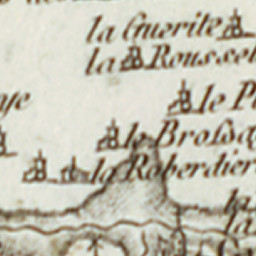 la Guerite
la Rousse
le P
le Brossa
la Roberdier
la